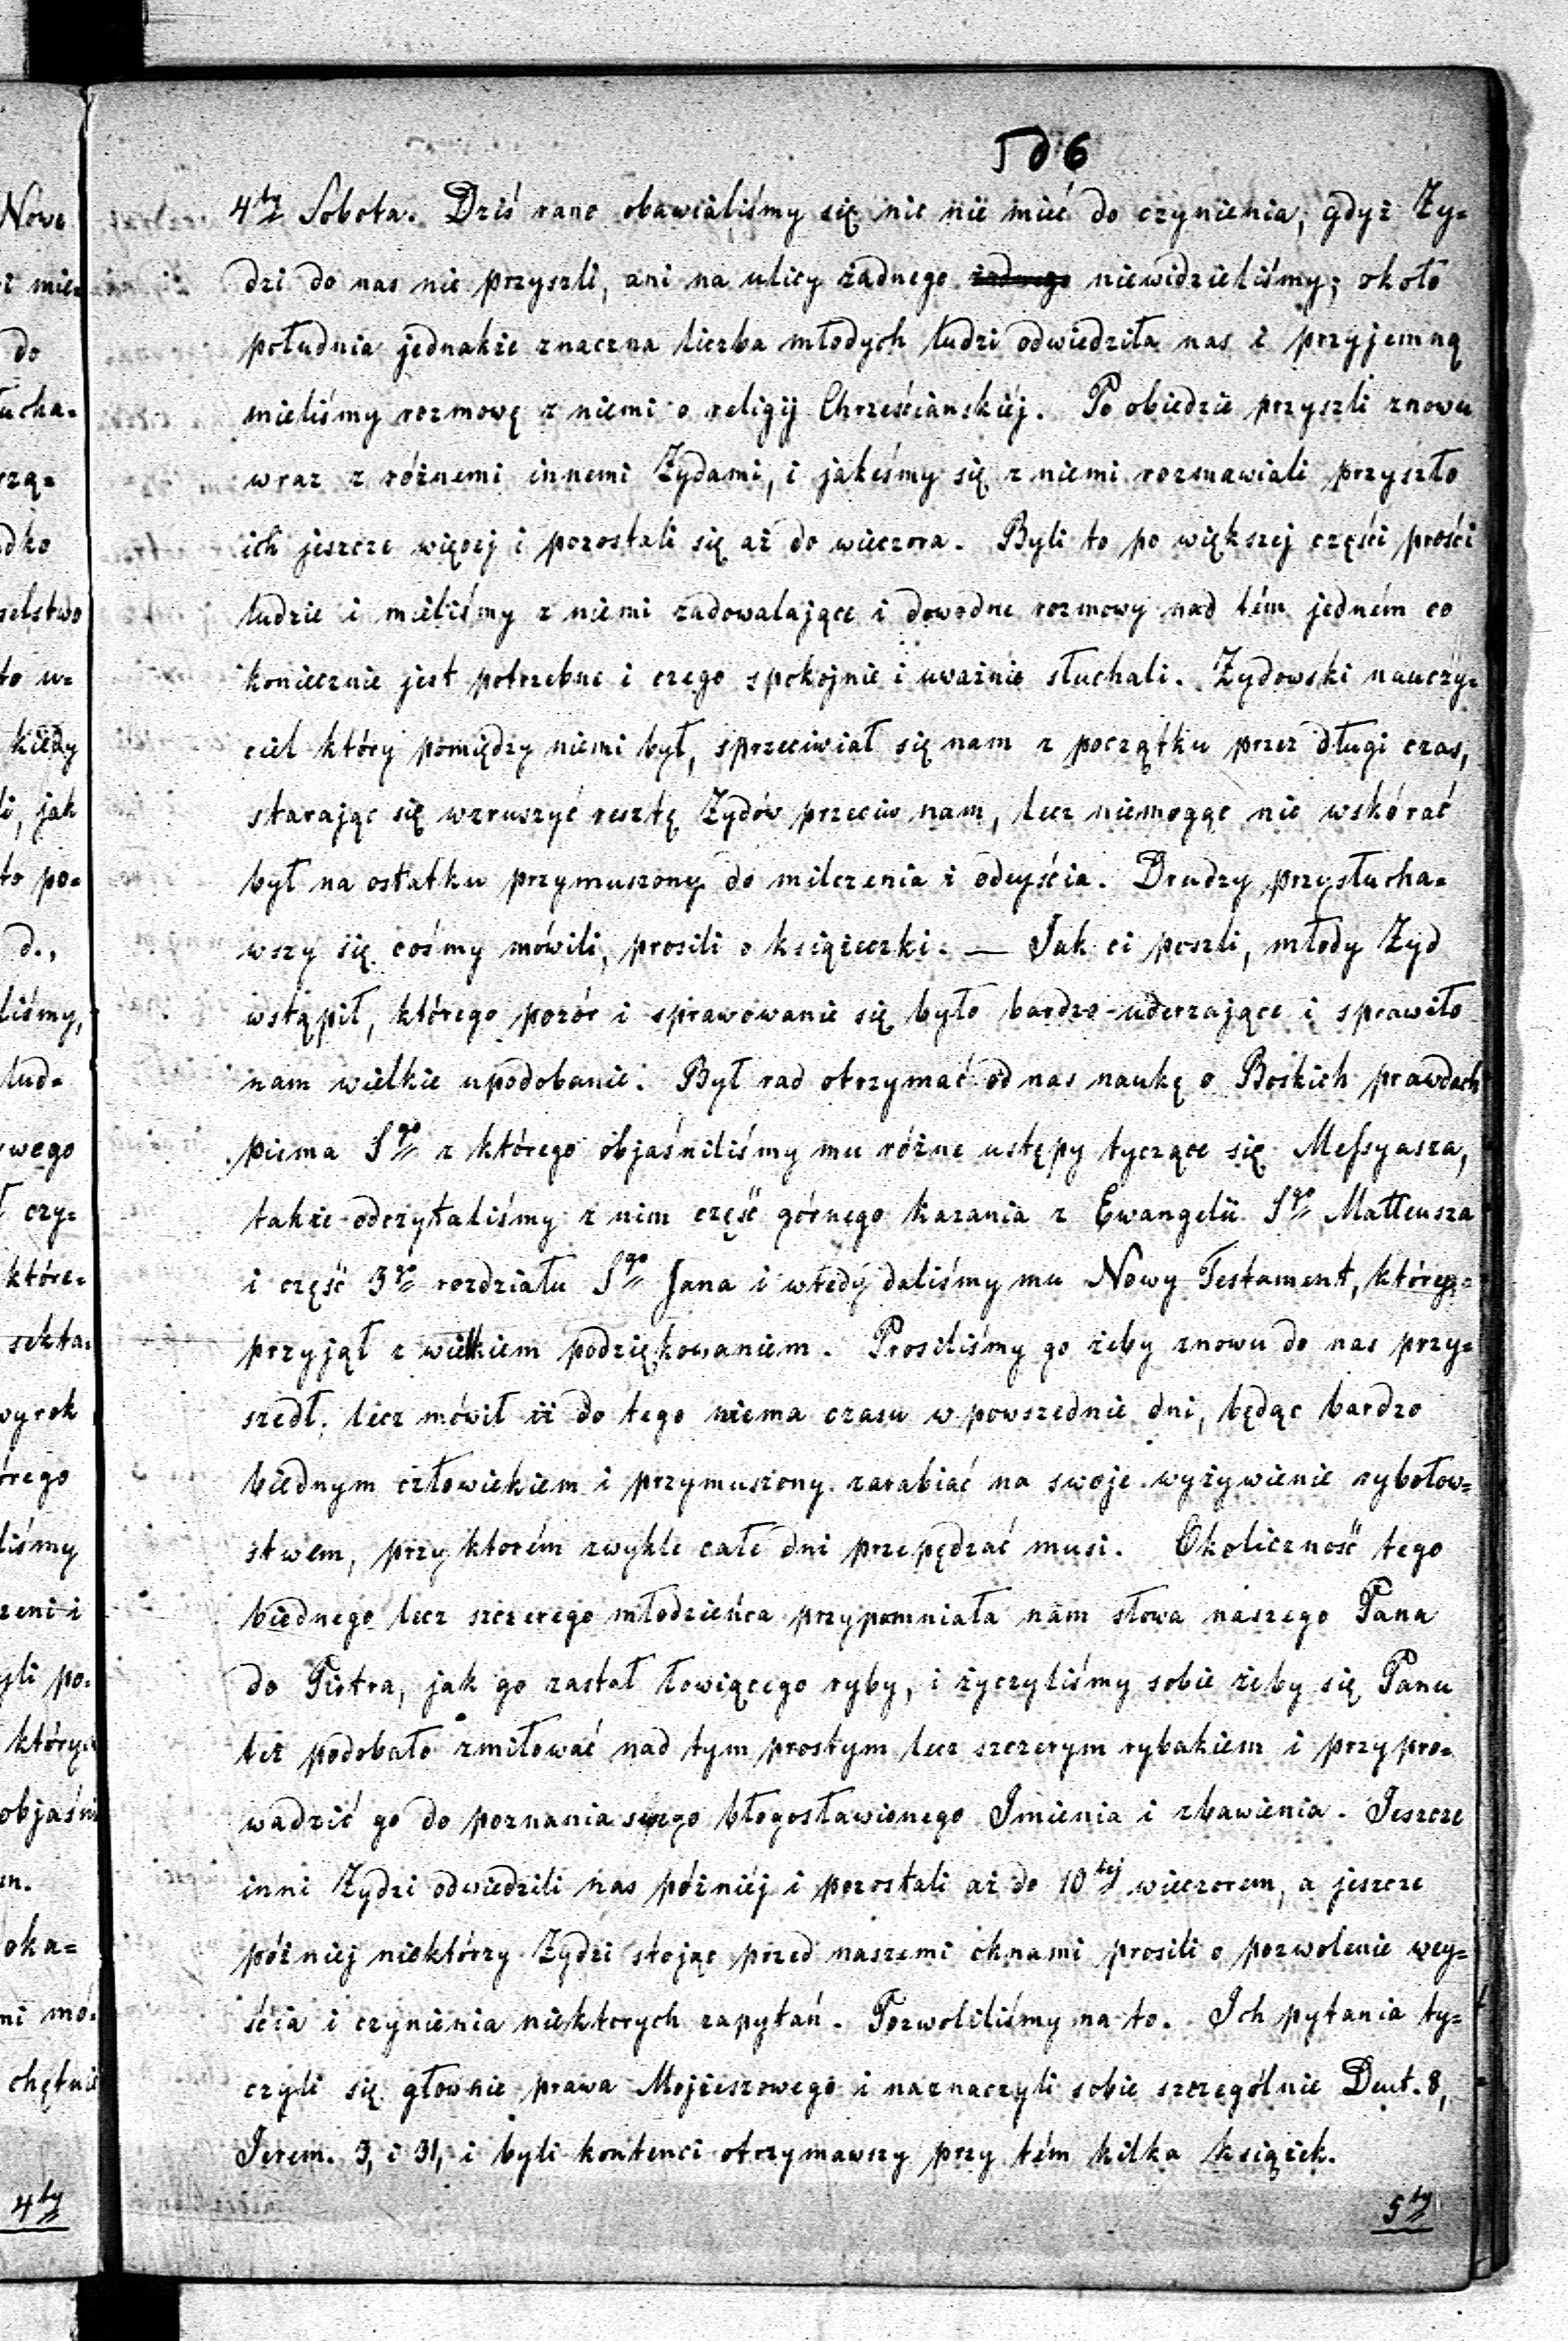 506
4ty Sobota. Dziś rano obawialiśmy się nic nie mieć do czynienia, gdyż Ży=
dzi do nas nie przyszli, ani na ulicy żadnego żadnego niewidzieliśmy; około
południa jednakże znaczna liczba młodych ludzi odwiedziła nas i przyjemną
mieliśmy rozmowę z niemi o religij Chrześcianskiéj. Po obiedzie przyszli znowu
wraz z różnemi innemi Żydami, i jakeśmy się z niemi rozmawiali przyszło
ich jeszcze więcej i pozostali się aż do wieczora. Byli to po większej części prości
ludzie i mieliśmy z niemi zadowalające i dowodne rozmowy nad tém jedném co
koniecznie jest potrzebne i czego spokojnie i uważnie słuchali. Żydowski nauczy=
ciel który pomiędzy niemi był, sprzeciwiał się nam z początku przez długi czas,
starając się wzruszyć resztę Żydów przeciw nam, lecz niemogąc nic wskórać
był na ostatku przymuszony do milczenia i odeyścia. Drudzy przysłucha=
wszy się cośmy mówili, prosili o książeczki. — Jak ci poszli, młody Żyd
wstąpił, którego pozór i sprawowanie się było bardzo uderzające i sprawiło
nam wielkie upodobanie. Był rad otrzymać od nas naukę o Boskich prawdach
pisma Sgo z którego objaśniliśmy mu różne ustępy tyczące się Messyasza,
także odczytaliśmy z nim część górnego kazania z Ewangelii Sgo Matteusza
i część 3go rozdziału Sgo Jana i wtedy daliśmy mu Nowy Testament, który
przyjął z wielkiem podziękowaniem. Prosiliśmy go żeby znowu do nas przy=
szedł, lecz mówił iż do tego niema czasu w powszednie dni, będąc bardzo
biednym człowiekiem i przymuszony zarabiać na swoje wyżywienie rybołow=
stwem, przy ktorém zwykle całe dni przepędzać musi. Okoliczność tego
biednego lecz szczerego młodzieńca przypomniała nam słowa naszego Pana
do Piotra, jak go zastał łowiącego ryby, i życzyliśmy sobie żeby się Panu
też podobało zmiłować nad tym prostym lecz szczerym rybakiem i przypro=
wadzić go do poznania swego błogosławionego Imienia i zbawienia. Jeszcze
inni Żydzi odwiedzili nas późniéj i pozostali aż do 10tej wieczorem, a jeszcze
póżniej niektórzy Żydzi stojąc przed naszemi oknami prosili o pozwolenie wey=
ścia i czynienia niektorych zapytań. Pozwoliliśmy na to. Ich pytania ty=
czyli się głownie prawa Mojżeszowego i naznaczyli sobie szczególnie Deut. 8,
Jerem. 3, i 31, i byli kontenci otrzymawszy przy tém kilka książek.
5ty